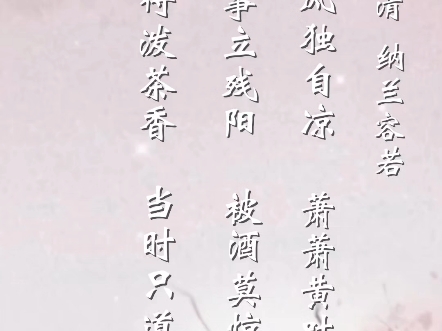 清 纳兰容若
独自凉 萧萧黄
立残阳 被酒莫
泼茶香 当时只道